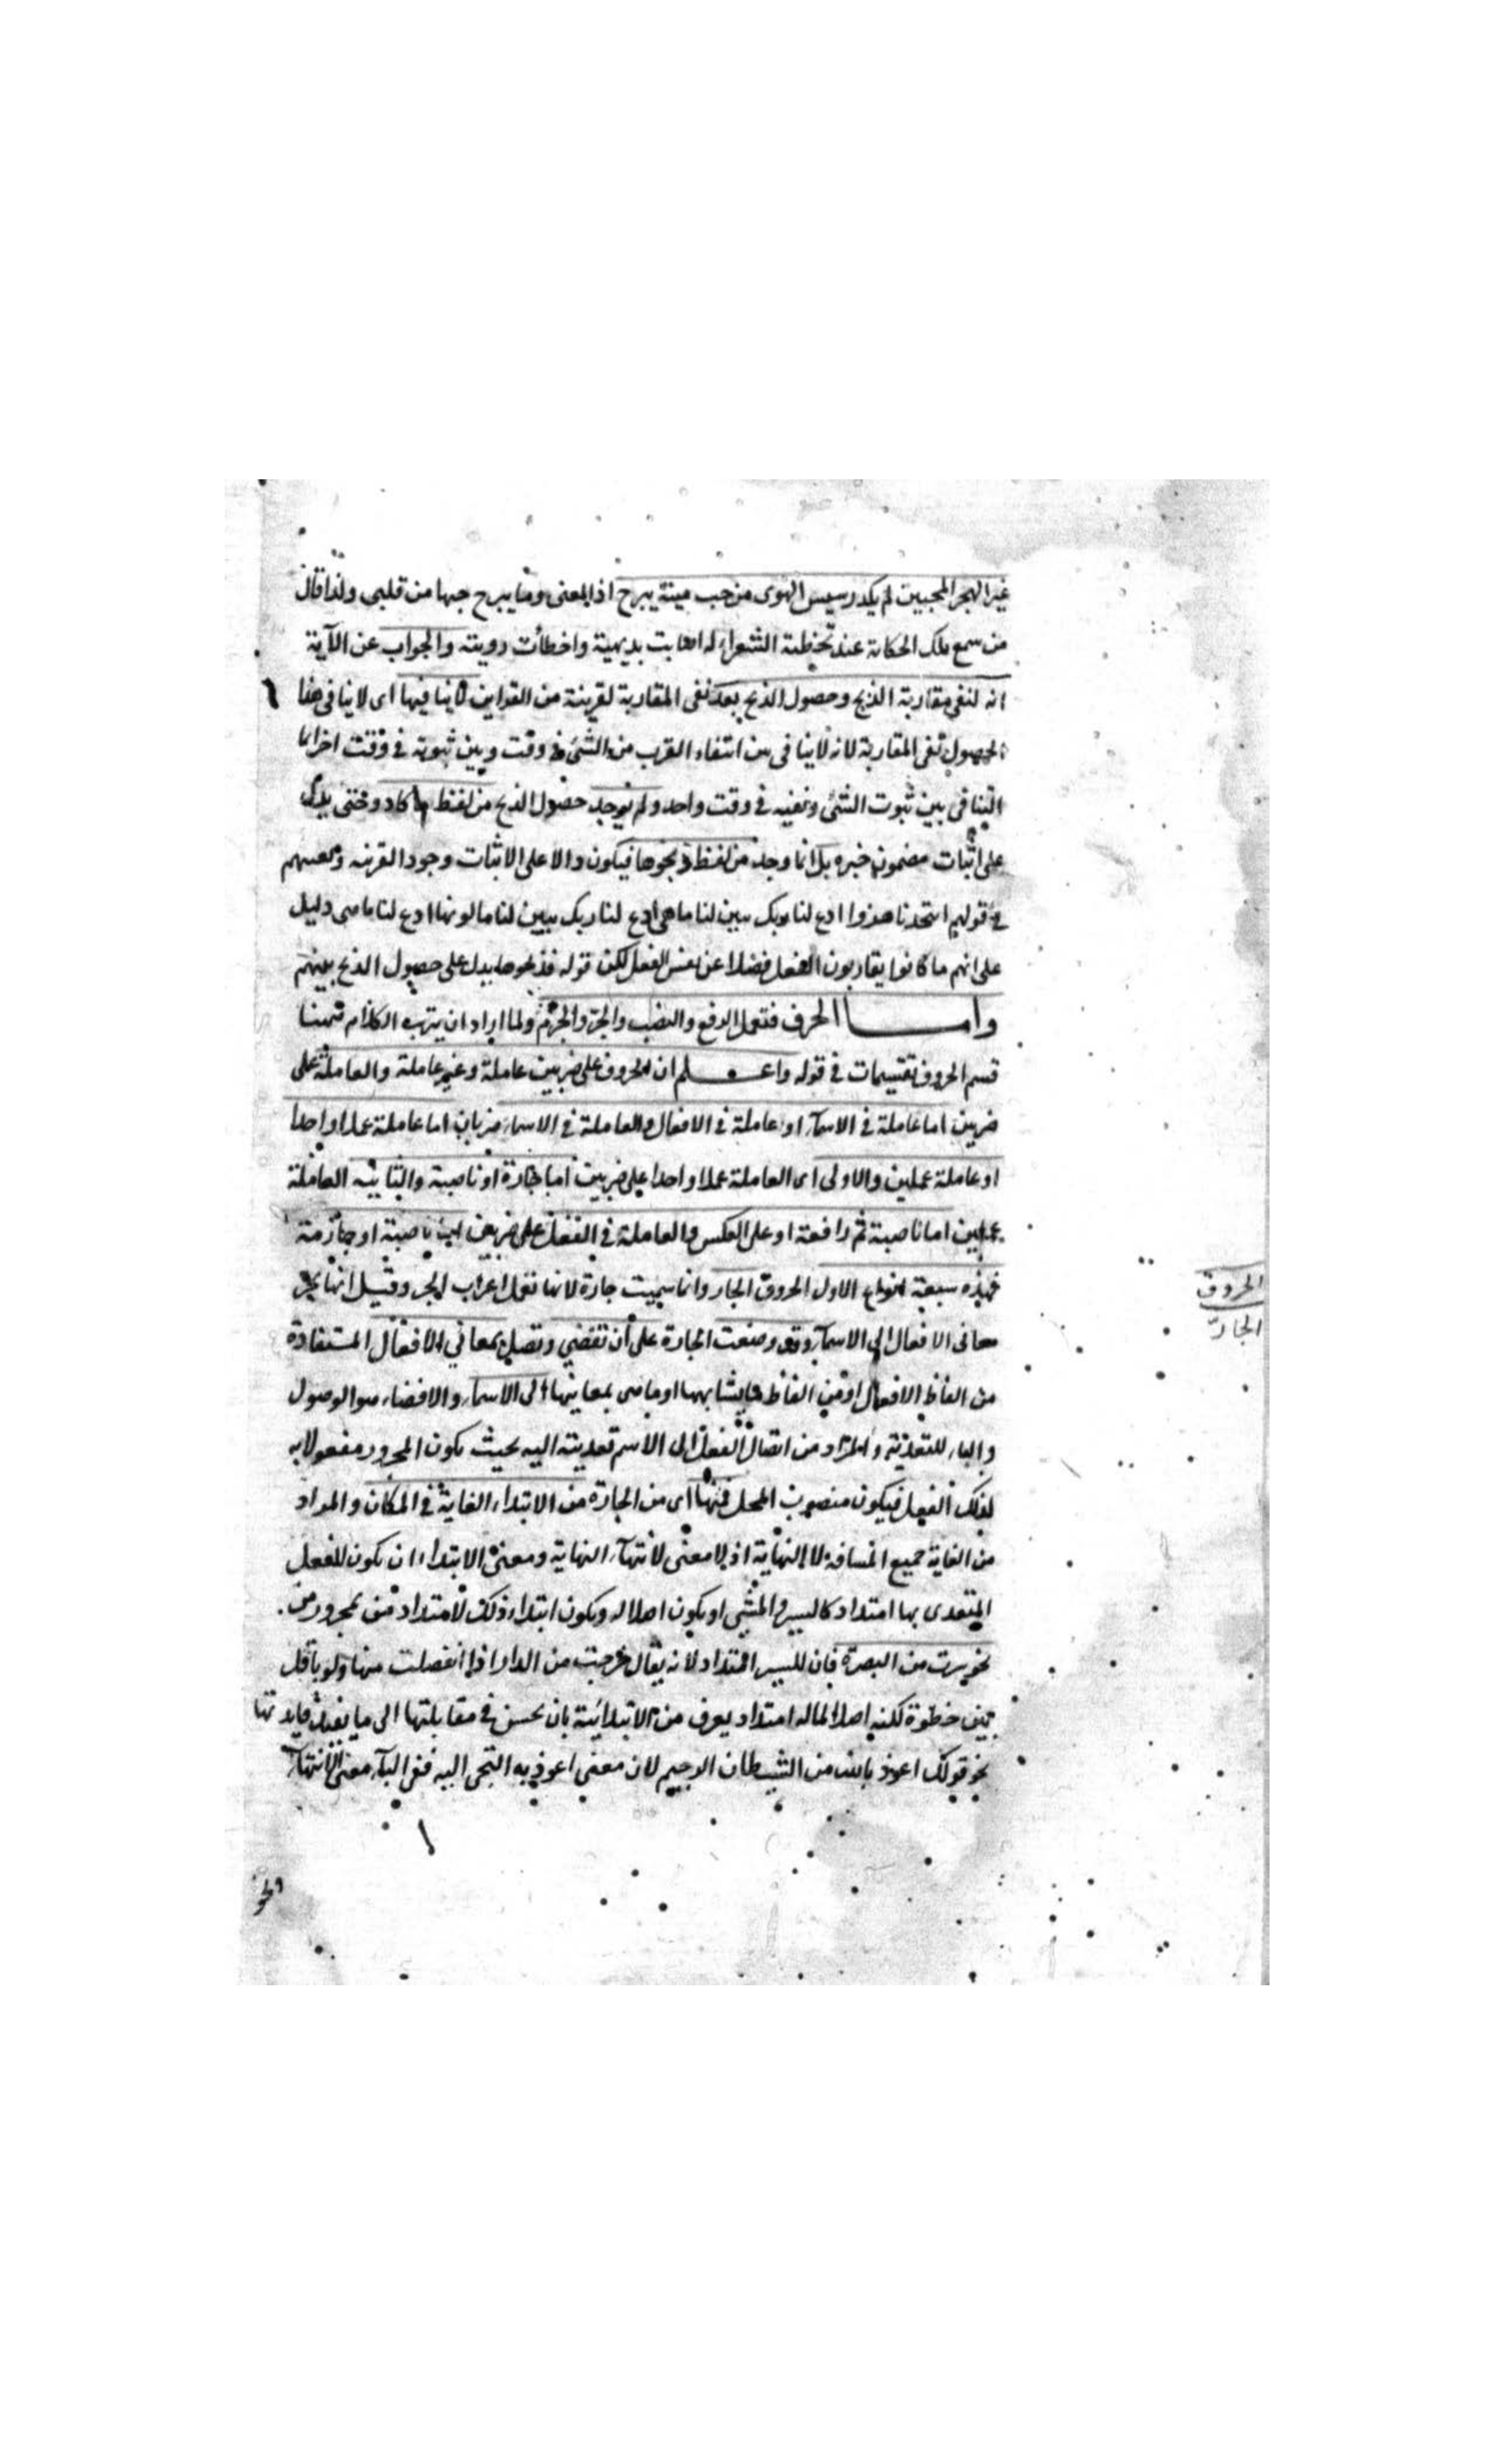 غير الهجر المحبين لم يكد رسيس الهوى من حب مية يبرح اذ المعنى وما يبرح حبها من قلبى ولذا قال
من سمع تلك الحكاية عند تخطئة الشعراء له اصابت بديهيته واخطأت رويته والجواب عن الآية
انه لنفى مقاربة الذبح وحصول الذبح بعد نفى المقاربة لقرينة من القراين لا ينافيها اى لا ينافى هذا
الحصول نفى المقاربة لانه لا ينافى بين انتفاء القرب من الشئ فى وقت وبين ثبوته فى وقت اخر انما
التنافى بين ثبوت الشئ ونفيه فى وقت واحد ولم يوجد حصول الذبح من لفظ ما كاد وحتى يدل
على اثبات مضمون خبره بل انما وجد من لفظ ذبحوها فيكون دالا على الاثبات وجود القرينه وتعنتهم
فى قولهم اتتخذنا هزوا ادع لنا ربك يبين لنا ما هى ادع لنا ربك يبين لنا ما لونها ادع لنا ما هى دليل
على انهم ما كانوا يقاربون الفعل فضلا عن نفس الفعل لكن قوله فذبحوها يدل على حصول الذبح بعينهم
واما الحرف فتعمل الرفع والنصب والجر والجزم ولما اراد ان يترتب الكلام
قسم الحروف تقسيمات فى قوله واعلم ان الحروف على ضربين عاملة وغير عاملة والعاملة على
ضربين اما عاملة فى الاسماء او عاملة فى الافعال والعاملة فى الاسماء ضربان اما عاملة عملا واحدا
او عاملة عملين والاولى اى العاملة عملا واحدا على ضربين اما جارة او ناصبة والثانيه العاملة
عملين اما ناصبة ثم رافعة او على العكس والعاملة فى الفعل على ضربين اما ناصبة او جازمة
فهذه سبعة انواع الاول الحروف الجار وانما سميت جارة لانها تعمل اعراب الجر وقيل انها تجر
معانى الافعال الى الاسماء وقد وضعت الجارة على أن تفضي وتصل بمعاني الافعال المستفادة
من الفاظ الافعال او من الفاظ ما يشابهها او ما هى بمعانيها الى الاسماء والافضاء هو الوصول
والباء للتعدية والمراد من اتصال الفعل الى الاسم تعديته اليه بحيث يكون المجرور مفعولا به
لذلك الفعل فيكون منصوب المحل فمنها اى من الجارة من الابتداء الغاية فى المكان والمراد
من الغاية جميع المسافة لا النهاية اذ لا معنى لانتهاء النهاية ومعنى الابتداء ان يكون للفعل
المتعدى بها امتداد كالسير والمشى او يكون اصلا له ويكون ابتداء ذلك الامتداد من مجرور من
نحو سرت من البصرة فان للسير امتداد لانه يقال خرجت من الدار اذا انفصلت منها ولو باقل
من خطوة لكنه اصلا لماله امتداد يعرف من الابتدائية بان يحسن فى مقابلتها الى ما يفيد فايدتها
نحو قولك اعوذ بالله من الشيطان الرجيم لان معنى اعوذ به التجى اليه ففى الباء معنى الانتهاء
الحروف
الجارّ